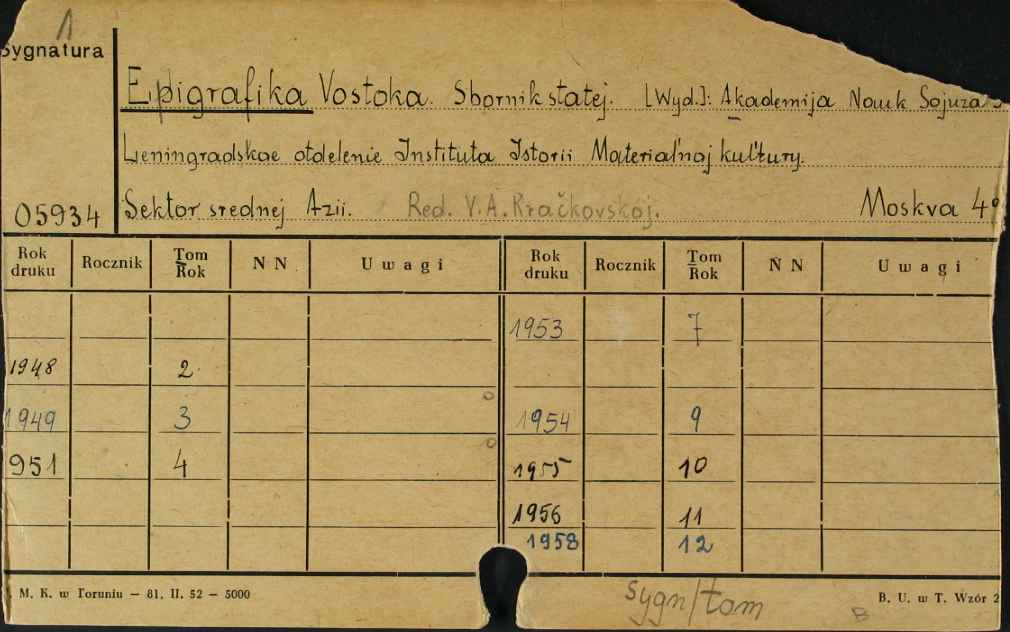 1
Sygnatura
Epigrafika Vostoka. Sbornik statej. [Wyd.]: Akademija Nauk Sojuza
Leningradskoe otdelenie Instituta Istorii Material'noj kul'tury.
05934 Sektor srednej Azii. Red. V. A. Kračkovskoj. Moskva 4°
Rok druku Rocznik Tom Rok N N Uwagi Rok druku Rocznik Tom Rok N N Uwagi
1953 7
1948 2
1949 3 1954 9
951 4 1955 10
1956 11
1958 12
M. K. w Toruniu — 81. II. 52 — 5000 sygn/tom B B. U. w T. Wzór 2